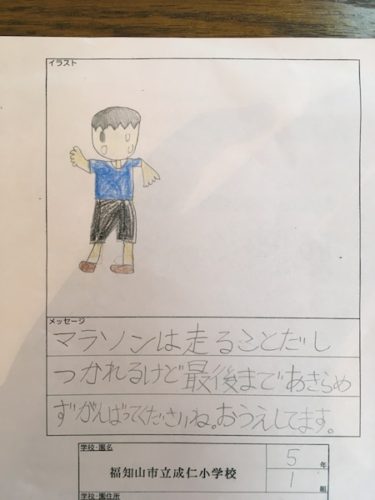 イラスト
メッセージ
マラソンは走ることだし
つかれるけど最後まであきらめ
ずがんばってくださいね。おうえしてます。
学校・園名
福知山市立成仁小学校
5年
1組
学校・園住所